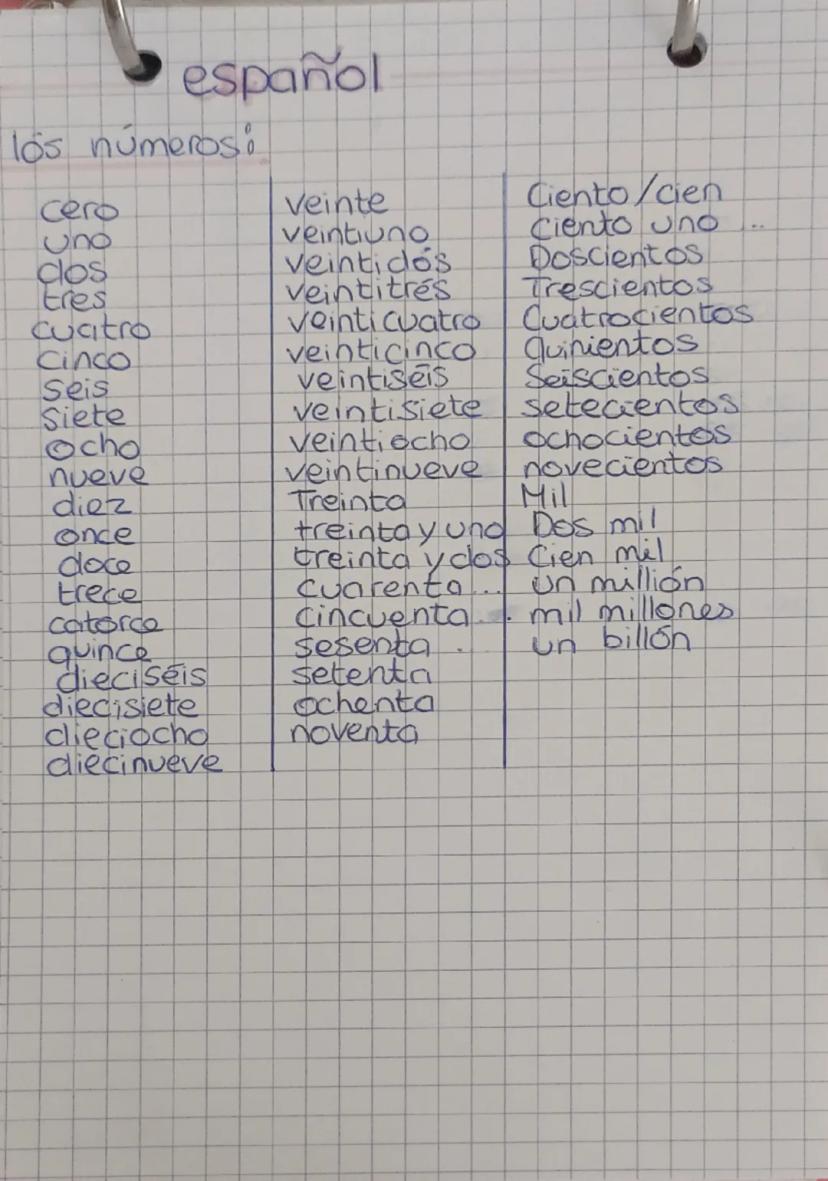 español
los números:
cero
uno
dos
tres
cuatro
cinco
seis
siete
ocho
nueve
diez
once
doce
trece
catorce
quince
dieciséis
diecisiete
dieciocho
diecinueve
veinte
veintiuno
veintidós
veintitrés
veinticuatro
veinticinco
veintiséis
veintisiete
veintiocho
veintinueve
Treinta
treinta y uno
treinta y dos
cuarenta...
cincuenta..
sesenta .
setenta
ochenta
noventa
Ciento/cien
ciento uno ..
Doscientos
Trescientos
Cuatrocientos
quinientos
Seiscientos
setecientos
ochocientos
novecientos
Mil
Dos mil
Cien mil
un millión
mil millones
un billón